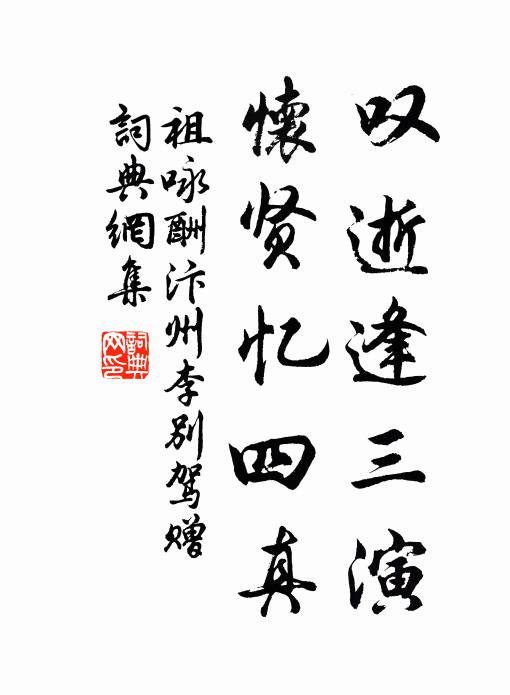 叹逝逢三演
懷贤忆四真
祖咏酬汴州李别驾赠
詞典網集
詞典
网印